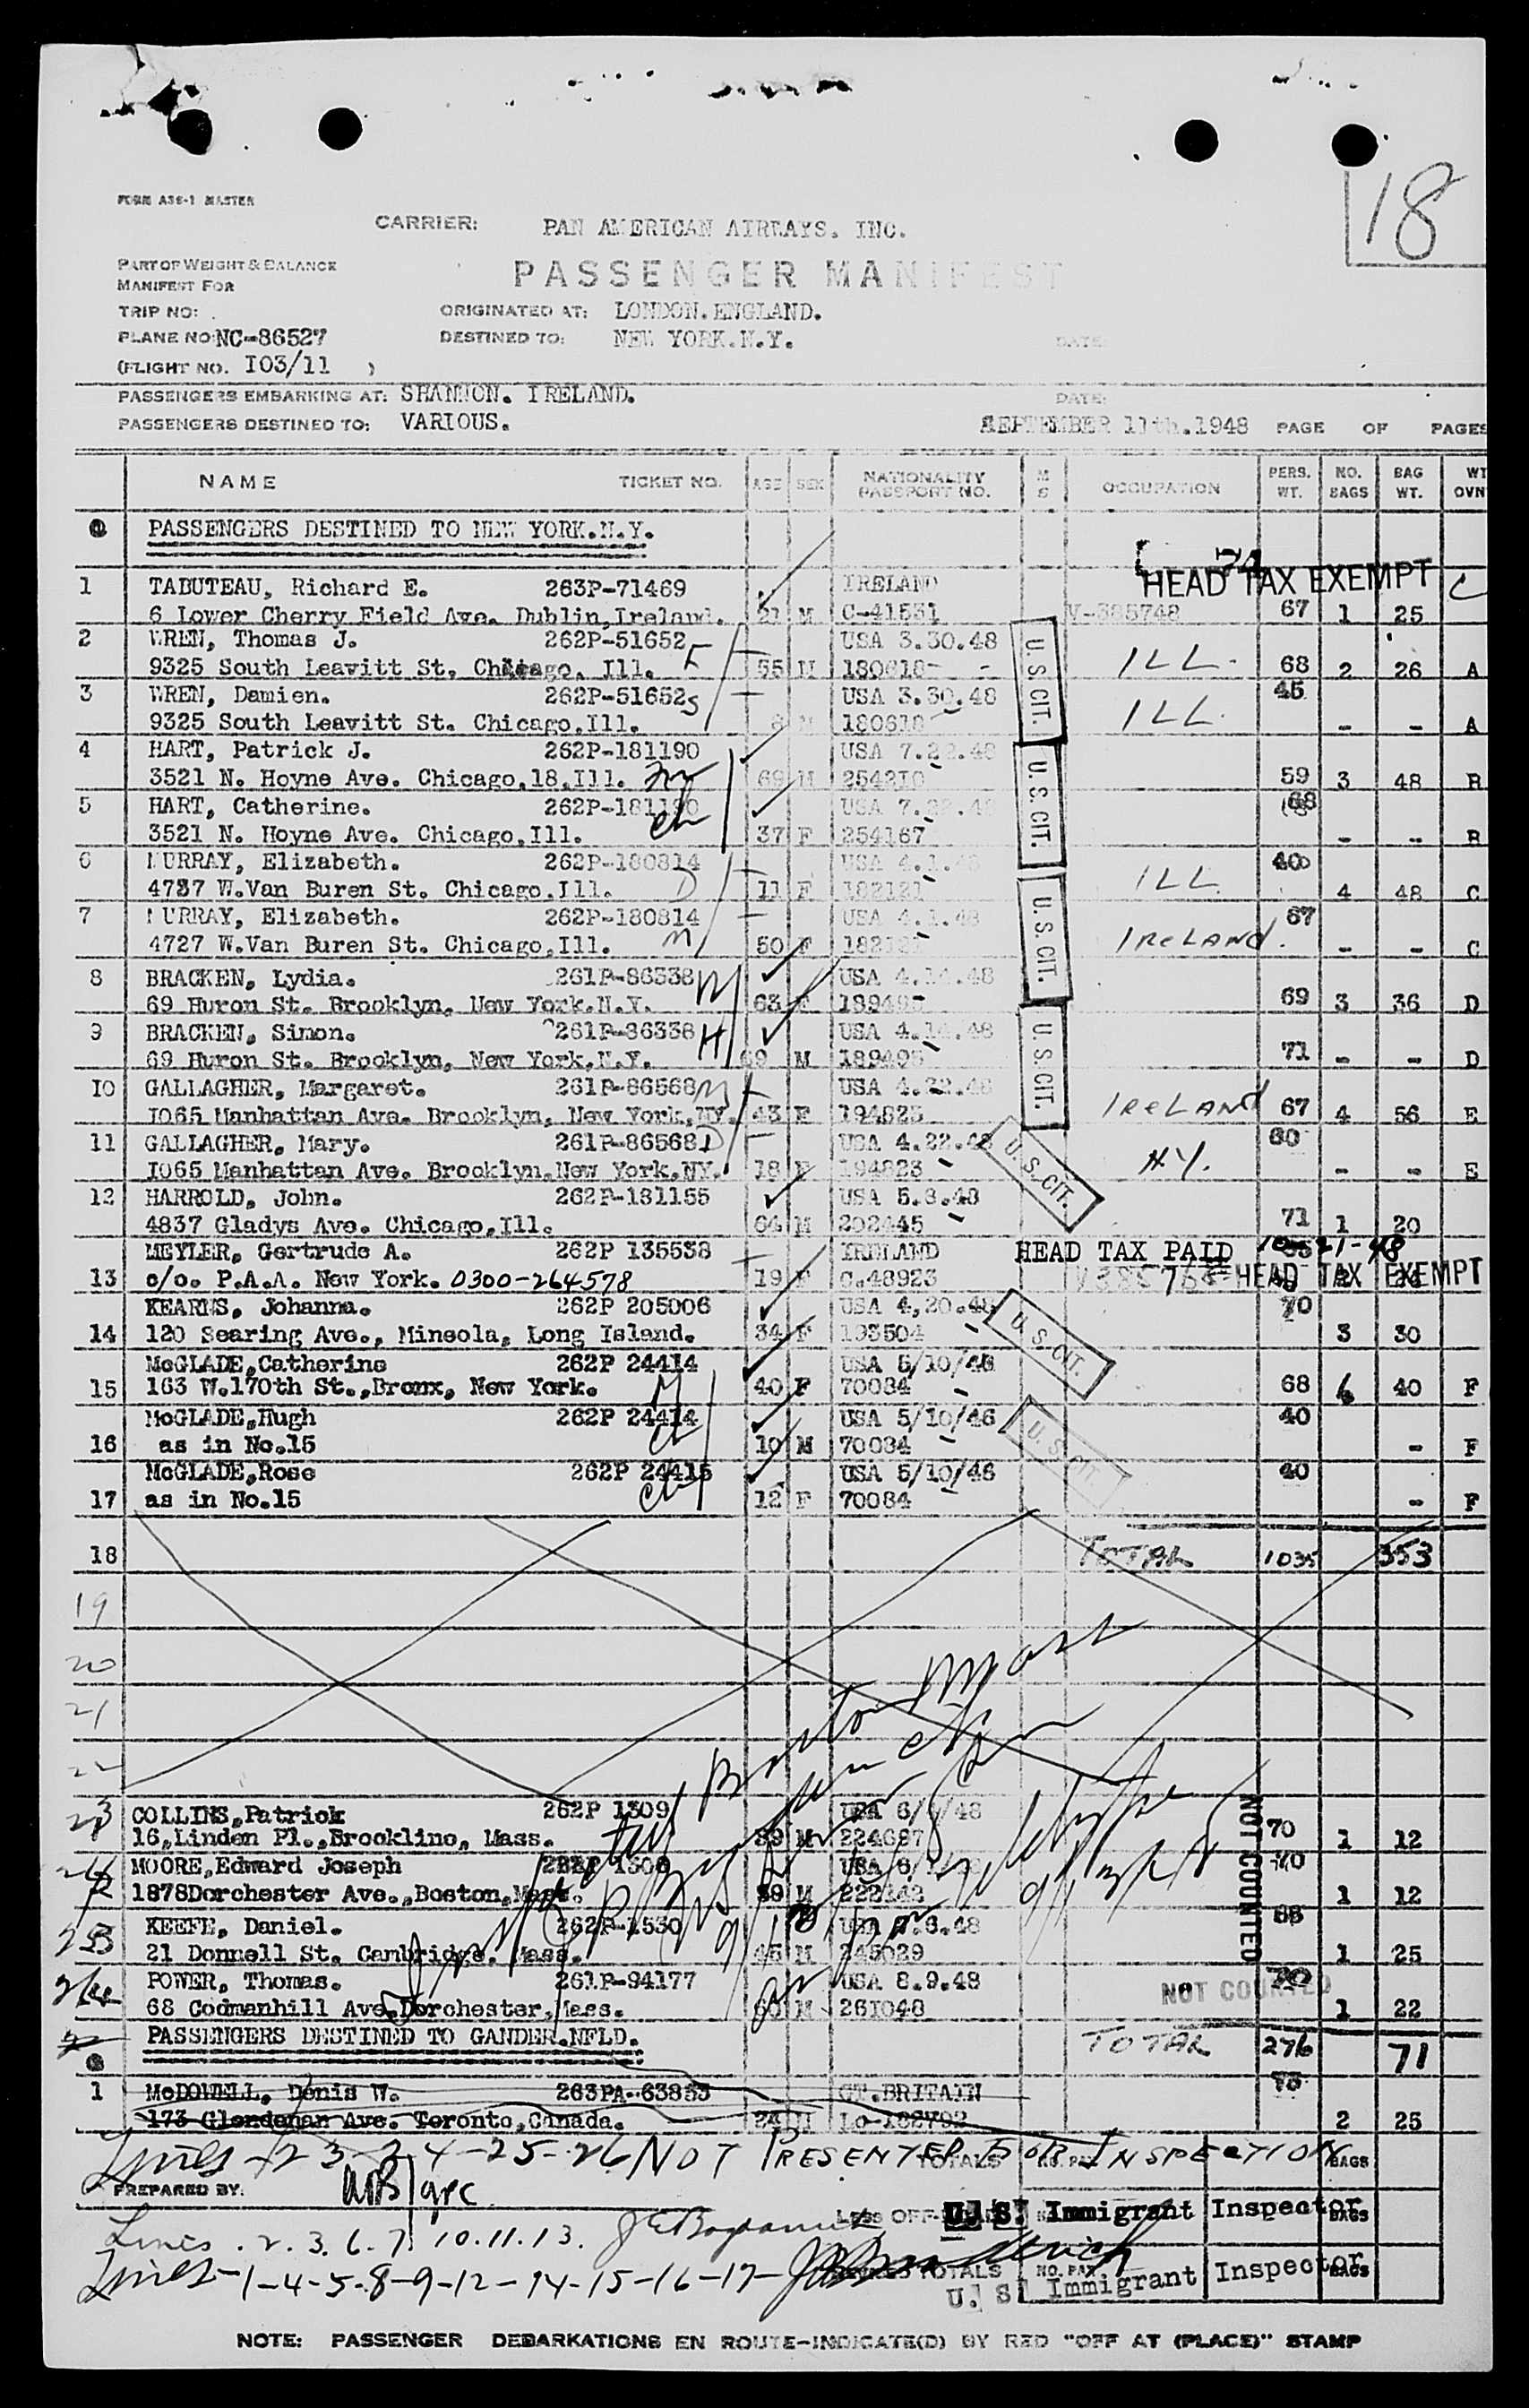 18
FORM A36-1 MASTER
CARRIER: PAN AMERICAN AIRWAYS. INC.
PART OF WEIGHT & BALANCE
MANIFEST FOR
PASSENGER MANIFEST
TRIP NO:
ORIGINATED AT: LONDON.ENGLAND.
PLANE NO: NC-86527
DESTINED TO: NEW YORK.N.Y.
DATE:
(FLIGHT NO. I03/11 )
PASSENGERS EMBARKING AT: SHANNON. IRELAND.
DATE:
PASSENGERS DESTINED TO: VARIOUS.
SEPTEMBER 11th.1948 PAGE OF PAGES
NAME TICKET NO. AGE SEX NATIONALITY PASSPORT NO. M S OCCUPATION PERS. WT. NO. BAGS BAG WT. WT OVN
PASSENGERS DESTINED TO NEW YORK.N.Y.
HEAD TAX EXEMPT
1 TABUTEAU, Richard E. 263P-71469 IRELAND
6 Lower Cherry Field Ave. Dublin,Ireland. 21 M C-41531 V-385748 67 1 25
2 WREN, Thomas J. 262P-51652 F USA 3.30.48
9325 South Leavitt St. Chicago, Ill. 55 M 180618 U.S. CIT. ILL. 68 2 26 A
3 WREN, Damien. 262P-51652 S USA 3.30.48 45
9325 South Leavitt St. Chicago,Ill. 6 M 180618 ILL. - - A
4 HART, Patrick J. 262P-181190 USA 7.22.48
3521 N. Hoyne Ave. Chicago,18,Ill. 69 M 254210 U.S. CIT. 59 3 48 B
5 HART, Catherine. 262P-181190 USA 7.22.48 68
3521 N. Hoyne Ave. Chicago,Ill. ch 37 F 254167 - - B
6 MURRAY, Elizabeth. 262P-180814 USA 4.1.48 40
4737 W.Van Buren St. Chicago,Ill. D 11 F 182121 U.S. CIT. ILL 4 48 C
7 MURRAY, Elizabeth. 262P-180814 USA 4.1.48 67
4727 W.Van Buren St. Chicago,Ill. M 50 F IRELAND. - - C
8 BRACKEN, Lydia. 261P-86338 USA 4.14.48
69 Huron St. Brooklyn, New York.N.Y. 63 F 69 3 36 D
9 BRACKEN, Simon. 261P-86338 H USA 4.14.48
69 Huron St. Brooklyn, New York,N.Y. 69 M 189495 U.S. CIT. 71 - - D
I0 GALLAGHER, Margaret. 261P-86568 M USA 4.22.48
I065 Manhattan Ave. Brooklyn, New York,NY. 43 F 194823 IRELAND 67 4 56 E
11 GALLAGHER, Mary. 261P-86568 D USA 4.22.48 60
I065 Manhattan Ave. Brooklyn.New York.NY. 18 F 194823 U.S. CIT. N.Y. - - E
12 HARROLD, John. 262P-181155 USA 5.8.48
4837 Gladys Ave. Chicago,Ill. 64 M 202445 71 1 20
MEYLER, Gertrude A. 262P 135538 IRELAND HEAD TAX PAID 10-21-48
13 c/o. P.A.A. New York. 0300-264578 19 F C.48923 HEAD TAX EXEMPT
KEARNS, Johanna. 262P 205006 USA 4,20.48 70
14 120 Searing Ave., Mineola, Long Island. 34 F 193504 U.S. CIT. 3 30
McGLADE,Catherine 262P 24414 USA 5/10/46
15 163 W.170th St.,Bronx, New York. M 40 F 70084 68 6 40 F
McGLADE,Hugh 262P 24414 USA 5/10/46 40
16 as in No.15 ch 10 M 70084 U.S. CIT. - F
McGLADE,Rose 262P 24415 USA 5/10/46 40
17 as in No.15 ch 12 F 70084 - F
18 TOTAL 1035 353
19
20
21
22
Boston Mass
23 COLLINS,Patrick 262P 1309 USA 6/ /48
16,Linden Pl.,Brookline, Mass. 39 M 224687 70 1 12
MOORE,Edward Joseph USA
1878Dorchester Ave.,Boston,Mass. 39 M 1 12
NOT COUNTED
KEEFE, Daniel. 262P-1530
21 Donnell St. Cambridge. Mass. 45 M 245029 1 25
POWER, Thomas. 261P-94177 USA 8.9.48 70
68 Codmanhill Ave.Dorchester,Mass. 60 M 261048 NOT COUNTED 1 22
PASSENGERS DESTINED TO GANDER.NFLD. TOTAL 276 71
1 McDOWELL, Denis W. 263PA-63853 GT.BRITAIN
Ave. Toronto,Canada. 24 M 2 25
Lines - 23-24-25-26 NOT PRESENTED FOR INSPECTION
TOTALS NO. PAX BAGS
PREPARED BY:
LESS OFF U. S. Immigrant Inspector BAGS
Lines. 2. 3. 6. 7. 10. 11. 13.
Lines - 1-4-5-8-9-12-14-15-16-17-
TOTALS NO. PAX BAGS
U. S. Immigrant Inspector
NOTE: PASSENGER DEBARKATIONS EN ROUTE-INDICATE(D) BY RED "OFF AT (PLACE)" STAMP